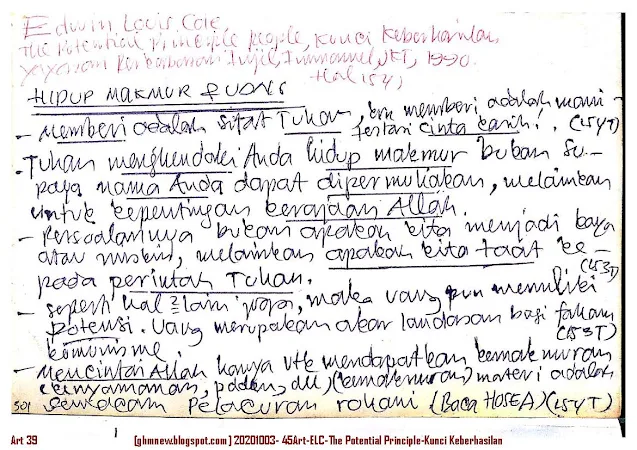 Edwin Louis Cole
The Potential Principle people, Kunci Keberhasilan
Yayasan Perkabaran Injil, Immanuel JKT, 1990.
Hal 154,
HIDUP MAKMUR & UANG
- Memberi adalah sifat Tuhan, krn memberi adalah mani-
festasi cinta kasih! (154T)
- Tuhan menghendaki Anda hidup makmur bukan su-
paya nama Anda dapat dipermuliakan, melainkan
untuk kepentingan kerajaan Allah.
- Persoalannya bukan apakah kita menjadi kaya
atau miskin, melainkan apakah kita taat ke-
pada perintah Tuhan. (153T)
- seperti hal2 lain juga, maka uang pun memiliki
potensi. Uang merupakan akar landasan bagi faham
komunisme. (153T)
- Mencintai Allah hanya utk mendapatkan kemakmuran
(kenyamanan, dll) (kemakmuran) materi adalah
semacam Pelacuran rohani (Baca HOSEA) (154T)
501
Art 39 [ghmnew.blogspot.com] 20201003- 45Art-ELC-The Potential Principle-Kunci Keberhasilan